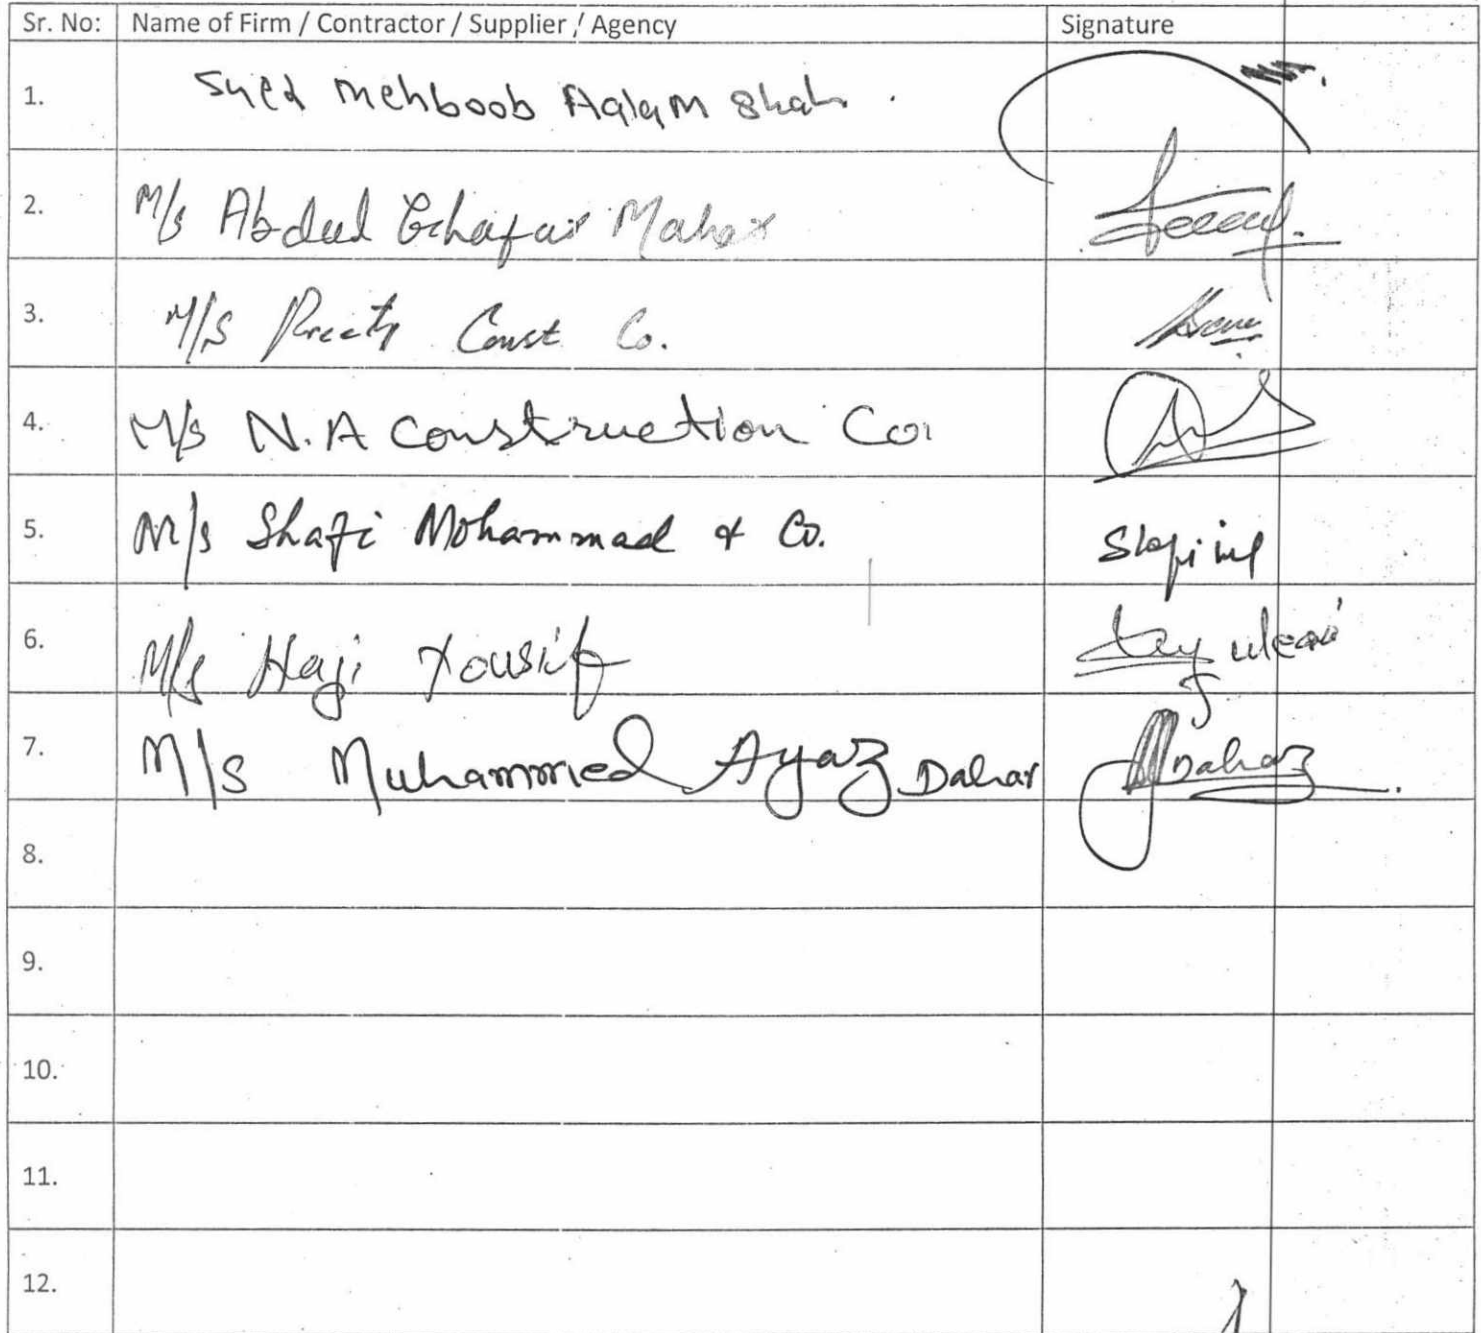 Sr. No: Name of Firm / Contractor / Supplier / Agency Signature
1. Syed Mehboob Aalam Shah.
2. M/s Abdul Ghafar Mahar
3. M/s Preety Const Co.
4. M/s N.A Construction Co.
5. M/s Shafi Mohammad & Co.
6. M/s Haji Yousif
7. M/s Muhammed Ayaz Dahar Dahar
8.
9.
10.
11.
12.